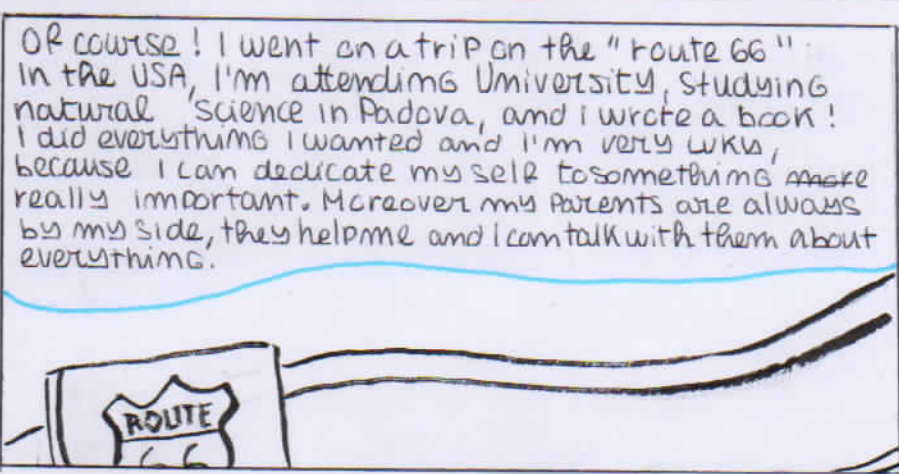 OF course! I went on a trip on the "route 66"
in the USA, I'm attending University, studying
natural science in Padova, and i wrote a book!
I did everything I wanted and I'm very luky,
because I can dedicate my self to something more
really important. Moreover my parents are always
by my side, they help me and I can talk with them about
everything.
ROUTE
66